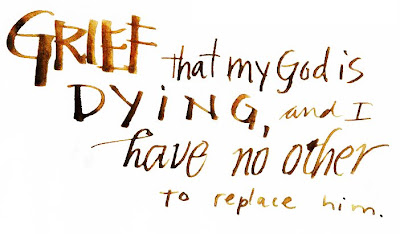 GRIEF that my God is
DYING, and I
have no other
to replace him.